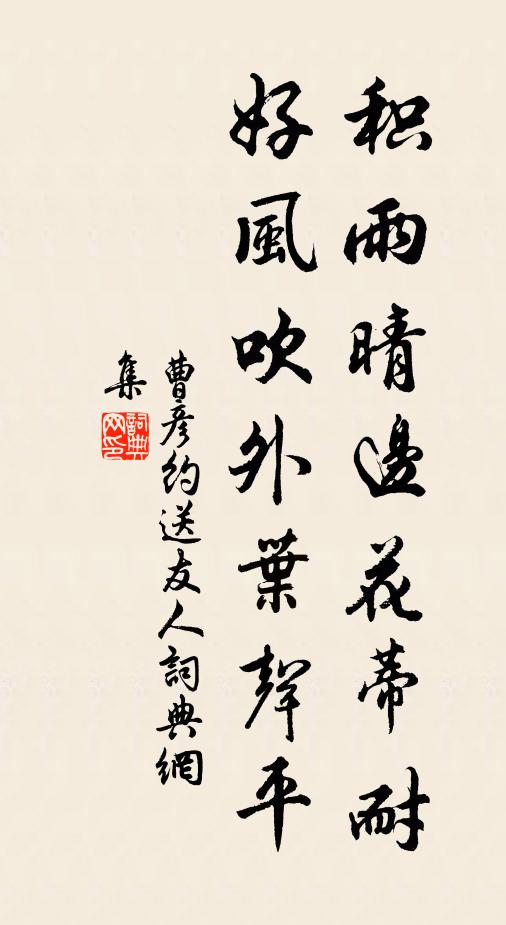 积雨晴邊花蒂耐
好風吹外葉聲平
曹彦約送友人詞典網
集
詞典
网印